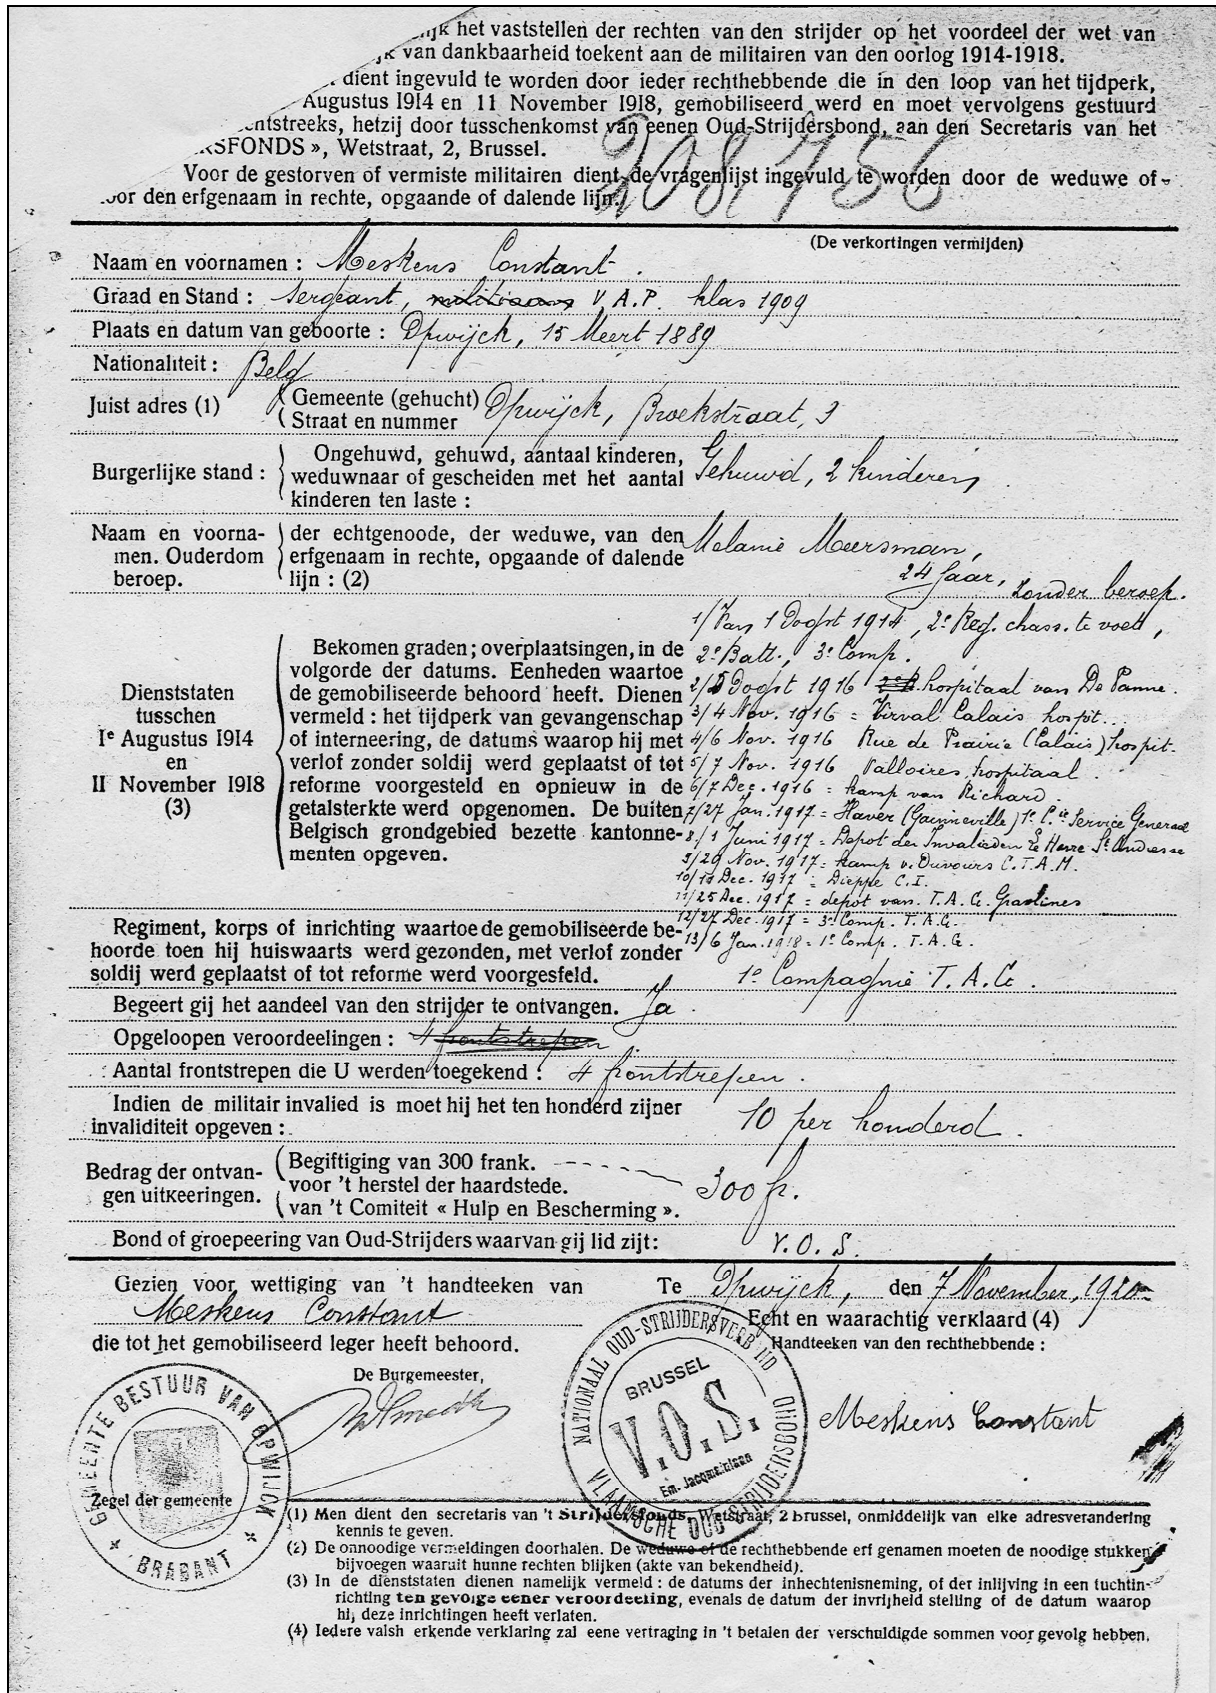 lijk het vaststellen der rechten van den strijder op het voordeel der wet van
van dankbaarheid toekent aan de militairen van den oorlog 1914-1918.
dient ingevuld te worden door ieder rechthebbende die in den loop van het tijdperk,
Augustus 1914 en 11 November 1918, gemobiliseerd werd en moet vervolgens gestuurd
chtstreeks, hetzij door tusschenkomst van eenen Oud-Strijdersbond, aan den Secretaris van het
RSFONDS », Wetstraat, 2, Brussel.
208,756
Voor de gestorven of vermiste militairen dient de vragenlijst ingevuld te worden door de weduwe of
oor den erfgenaam in rechte, opgaande of dalende lijn.
(De verkortingen vermijden)
Naam en voornamen : Meskens Constant.
Graad en Stand : Sergeant, V.A.P. klas 1909
Plaats en datum van geboorte : Opwijck, 15 Meert 1889
Nationaliteit : Belg
Juist adres (1) Gemeente (gehucht) Straat en nummer Opwijck, Broekstraat, 3
Burgerlijke stand : Ongehuwd, gehuwd, aantaal kinderen, weduwnaar of gescheiden met het aantal kinderen ten laste : Gehuwd, 2 kinderen
Naam en voorna- der echtgenoode, der weduwe, van den Melanie Meersman,
men. Ouderdom erfgenaam in rechte, opgaande of dalende 24 Jaar,
beroep. lijn : (2) zonder beroep.
Dienststaten
tusschen
1e Augustus 1914
en
11 November 1918
(3)
Bekomen graden ; overplaatsingen, in de
volgorde der datums. Eenheden waartoe
de gemobiliseerde behoord heeft. Dienen
vermeld : het tijdperk van gevangenschap
of interneering, de datums waarop hij met
verlof zonder soldij werd geplaatst of tot
reforme voorgesteld en opnieuw in de
getalsterkte werd opgenomen. De buiten
Belgisch grondgebied bezette kantonne-
menten opgeven.
1/ Van 1 Oogst 1914, 2e Reg. chass. te voet,
2e Batt., 3e Comp.
2/5 Oogst 1916 hospitaal van De Panne.
3/4 Nov. 1916 = Virval Calais hospit...
4/6 Nov. 1916 Rue de Prairie (Calais) hospit.
5/7 Nov. 1916 Valloires hospitaal.
6/7 Dec. 1916 = kamp van Richard.
7/27 Jan. 1917 = Haver (Gainneville) 1e Cie Service General
8/1 Juni 1917 = Depot der Invalieden Le Havre St Andresse
9/29 Nov. 1917 = kamp v. Duvours C.T.A.M.
Dec. 1917 = Dieppe C.I.
11/25 Dec. 1917 = depot van T.A.G.
12/27 Dec. 1917 = 3e Comp. T.A.G.
13/6 Jan. 1918 = 1e Comp. T.A.G.
Regiment, korps of inrichting waartoe de gemobiliseerde be-
hoorde toen hij huiswaarts werd gezonden, met verlof zonder
soldij werd geplaatst of tot reforme werd voorgesfeld. 1e Compagnie T.A.G.
Begeert gij het aandeel van den strijder te ontvangen. Ja.
Opgeloopen veroordeelingen : 4 frontstrepen
Aantal frontstrepen die U werden toegekend : 4 frontstrepen.
Indien de militair invalied is moet hij het ten honderd zijner
invaliditeit opgeven : 10 per honderd.
Bedrag der ontvan- Begiftiging van 300 frank.
gen uitkeeringen. voor 't herstel der haardstede. 300 fr.
van 't Comiteit « Hulp en Bescherming ».
Bond of groepeering van Oud-Strijders waarvan gij lid zijt: V.O.S.
Gezien voor wettiging van 't handteeken van Te Opwijck, den 7 November, 1920
Meskens Constant Echt en waarachtig verklaard (4)
die tot het gemobiliseerd leger heeft behoord. Handteeken van den rechthebbende :
De Burgemeester,
Meskens Constant
GEMEENTE BESTUUR VAN OPWIJCK
BRABANT
Zegel der gemeente
NATIONAAL OUD-STRIJDERSVERBOND
BRUSSEL
V.O.S.
Em. Jacqmainlaan
VLAAMSCHE OUD-STRIJDERSBOND
(1) Men dient den secretaris van 't Strijdersfonds, Wetstraat, 2 brussel, onmiddelijk van elke adresverandering
kennis te geven.
(2) De onnoodige vermeldingen doorhalen. De weduwe of de rechthebbende erf genamen moeten de noodige stukken
bijvoegen waaruit hunne rechten blijken (akte van bekendheid).
(3) In de dienststaten dienen namelijk vermeld : de datums der inhechtenisneming, of der inlijving in een tuchtin-
richting ten gevolge eener veroordeeling, evenals de datum der invrijheid stelling of de datum waarop
hij deze inrichtingen heeft verlaten.
(4) Iedere valsh erkende verklaring zal eene vertraging in 't betalen der verschuldigde sommen voor gevolg hebben.